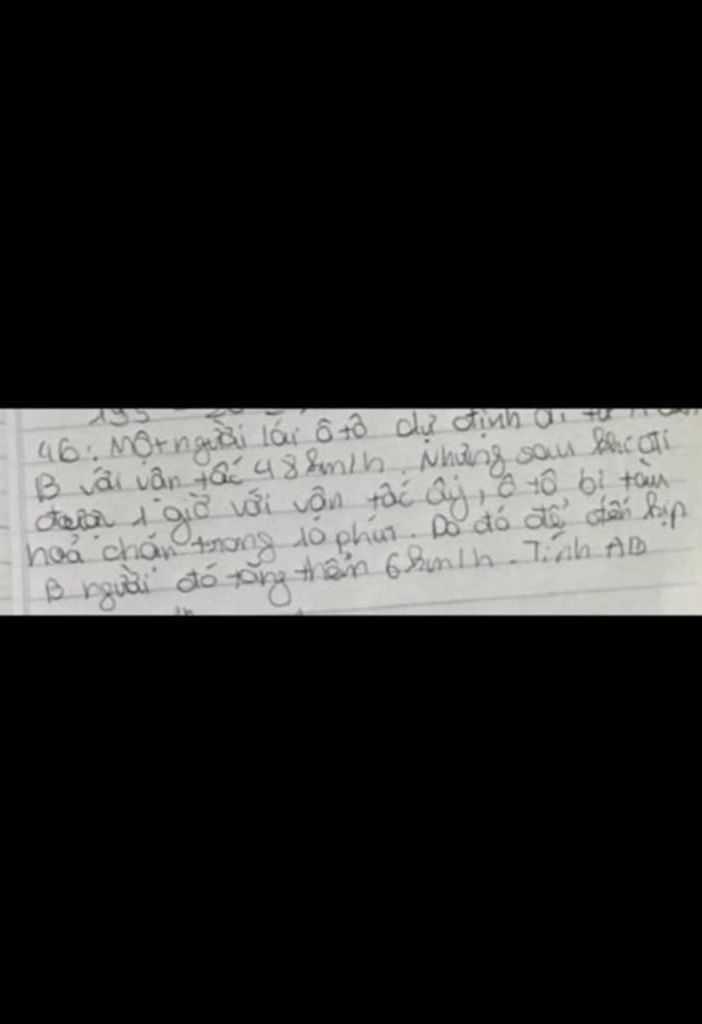 46: Một người lái ô tô dự định đi từ
B với vận tốc 48km/h. Nhưng sau khi đi
được 1 giờ với vận tốc ấy, ô tô bị tàu
hoả chắn trong 10 phút. Do đó để đến kịp
B người đó tăng thêm 6km/h. Tính AB